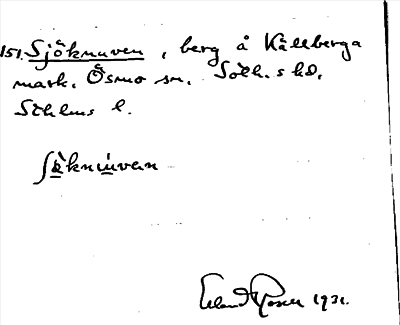 151. Sjöknuven, berg å Källberga
mark. Ösmo sn. Soth. shd.
Sthlms l.
ʃö̀knu̇ven
Erland Rosell 1931.